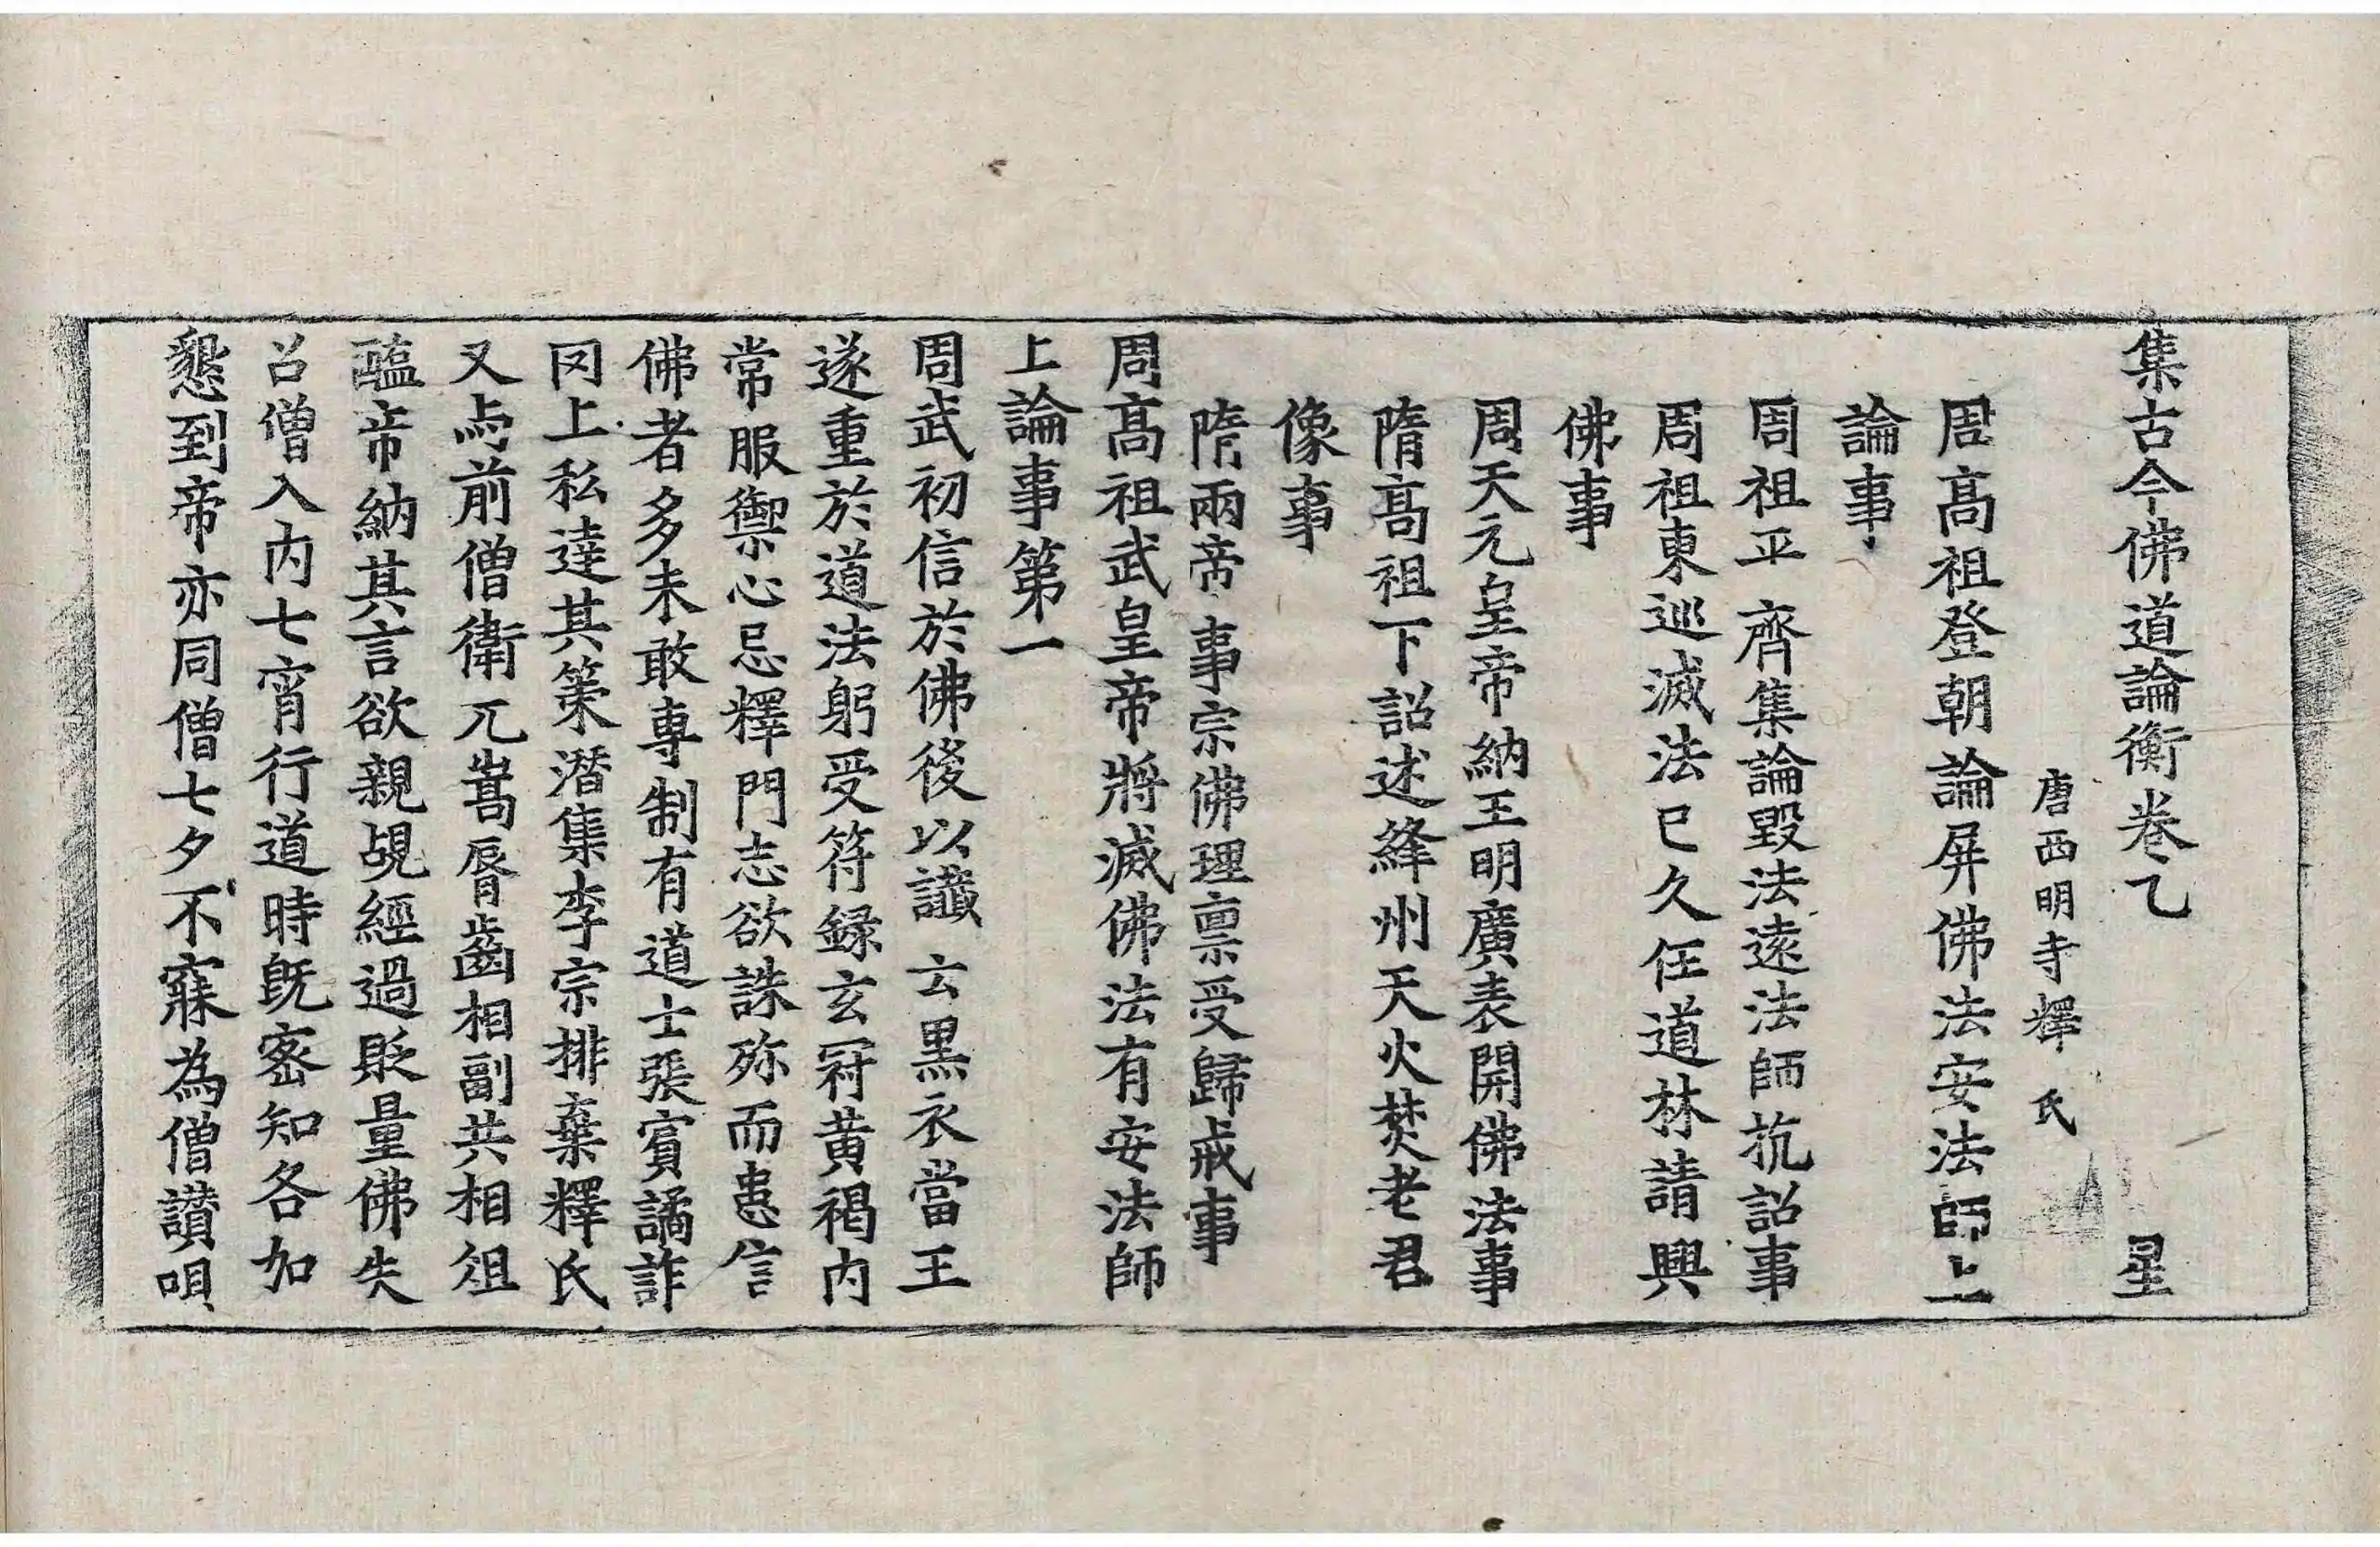 集古今佛道論衡卷乙　星
唐西明寺釋氏
周髙祖登朝論屏佛法安法師上
論事
周祖平齊集論毀法遠法師抗詔事
周祖東巡滅法已久任道林請興
佛事
周天元皇帝納王明廣表開佛法事
隋髙祖下詔述絳州天火焚老君
像事
隋兩帝事宗佛理禀受歸戒事
周髙祖武皇帝將滅佛法有安法師
上論事第一
周武初信於佛後以讖云黒衣當王
遂重於道法躬受符録玄冠黄褐内
常服禦心忌釋門志欲誅殄而患信
佛者多未敢專制有道士張賔譎詐
罔上私達其策潜集李宗排棄釋氏
又与前僧衛元嵩脣齒相副共相俎
醖帝納其言欲親覘經過貶量佛失
召僧入内七宵行道時旣密知各加
懇到帝亦同僧七夕不寐為僧讃唄